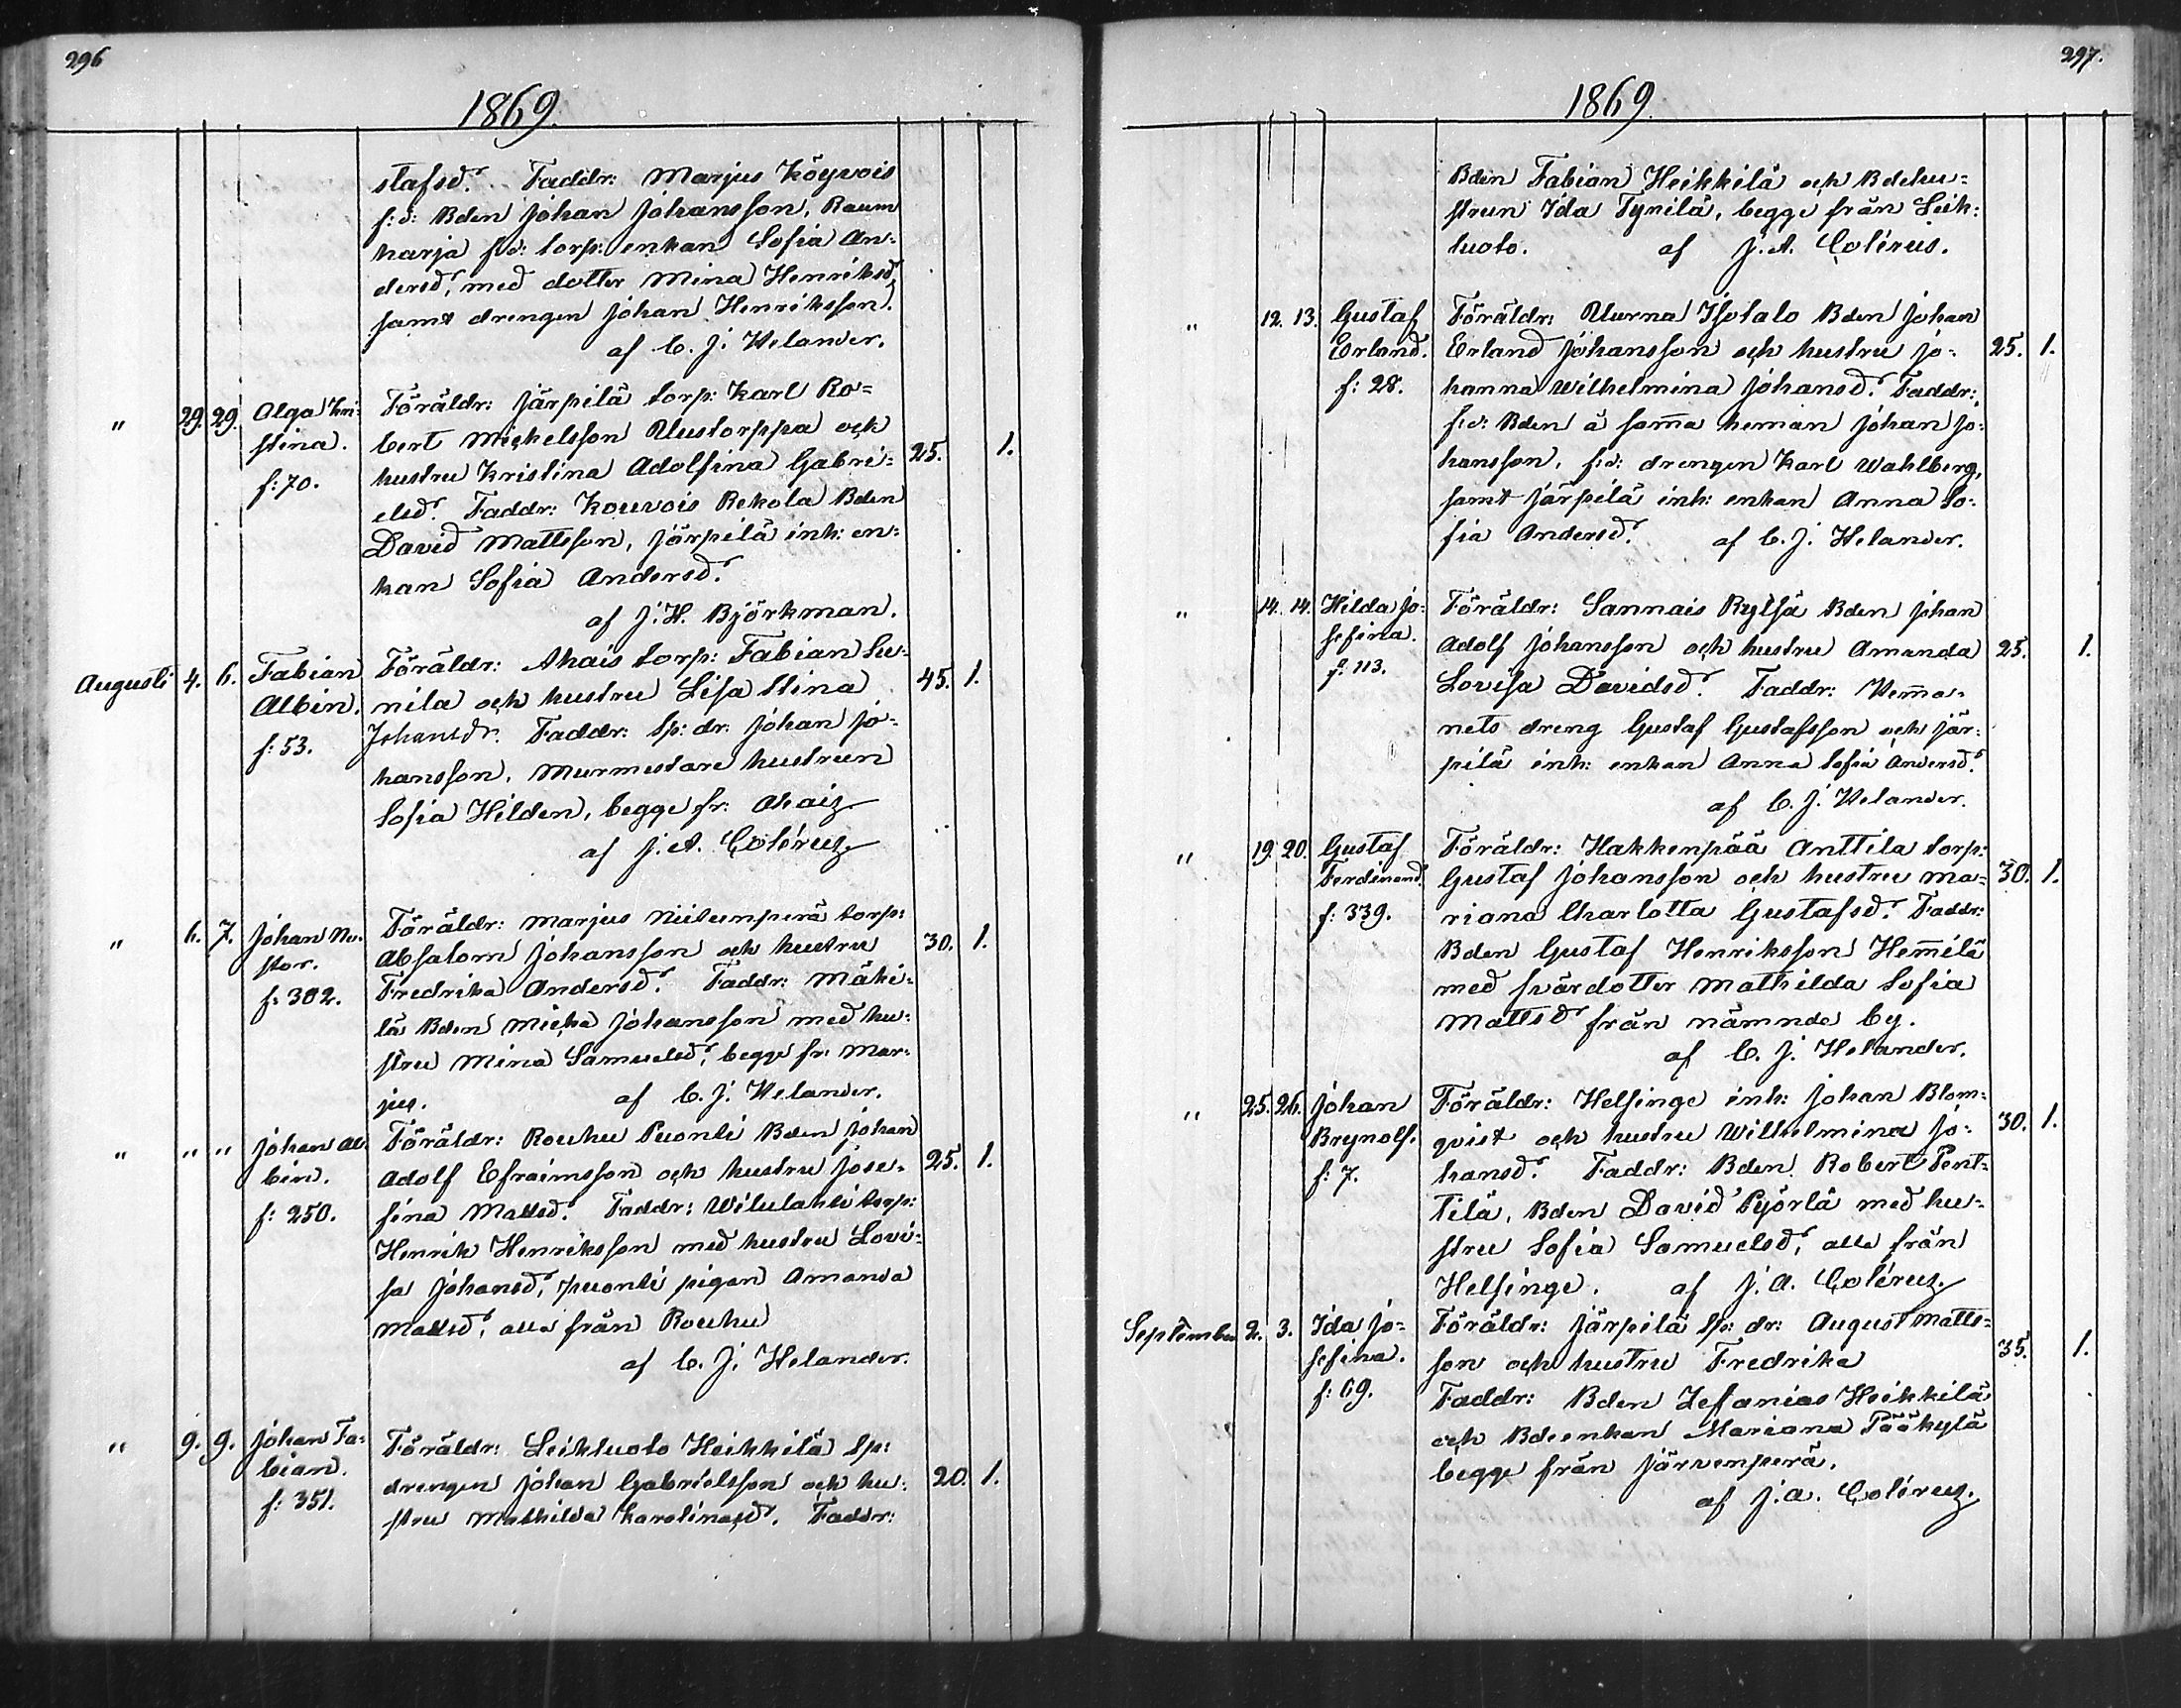 296
1869.
stafsd. Faddr: Marjus Köyvois
f:d: Bden Johan Johansson, Raum
karja f:d: torp: enkan Sofia An-
dersd, med dotter Mina Henriksd,
samt drengen Johan Henriksson.
af C. J. Helander.
" 29. 29. Olga Kri- Föräldr: Järpilä torp: Karl Ro=
stina. bert Michelsson Uustorppa och
f: 70. hustru Kristina Adolfina Gabri- 25. 1.
elsd. Faddr: Kouvois Rekola Bden
David Mattsson, Järpilä inh: en-
kan Sofia Andersd.
af J. H. Björkman.
Augusti 4. 6. Fabian Föräldr: Ahais torp: Fabian Su-
Albin. nila och hustru Lisa Stina 45. 1.
f: 53. Johansdr. Faddr: Sp: dr: Johan Jo-
hansson, Murmestare hustrun
Sofia Hilden, begge fr: Ahais
af J. A. Colérus.
" 6. 7. Johan Ne- Föräldr: Marjus Niitunperä torp:
stor. Absalom Johansson och hustru 30. 1.
f: 302. Fredrika Andersd. Faddr: Mäki-
lä Bden Micka Johansson med hu-
stru Mina Samuelsd, begge fr: Mar-
jus. af C. J. Helander.
" " " Johan Al- Föräldr: Rouhu Puonti Bden Johan
bin. Adolf Efraimsson och hustru Jose- 25. 1.
f: 250. fina Mattsd. Faddr: Wilulahti torp:
Henrik Henriksson med hustru Lovi-
sa Johansd, Puonti pigan Amanda
Mattsd, alla från Rouhu
af C. J. Helander.
" 9. 9. Johan Fa- Föräldr: Leikluoto Heikkilä Sp:
bian. drengen Johan Gabrielsson och hu- 20. 1.
f: 351. stru Mathilda Karolinasd. Faddr:
297.
1869.
Bden Fabian Heikkilä och Bdehu-
strun Ida Tynilä, begge från Leik-
luoto. af J. A. Colérus.
" 12. 13. Gustaf Föräldr: Uurna Isotalo Bden Johan
Erland. Erland Johansson och hustru Jo- 25. 1.
f: 28. hanna Wilhelmina Johansd. Faddr:
f:d: Bden å samma heman Johan Jo-
hansson, f:d: drengen Karl Wahlberg,
samt Järpilä inh: enkan Anna So-
fia Andersd. af C. J. Helander.
" 14. 14. Hilda Jo- Föräldr: Sannais Rytsä Bden Johan
sefina. Adolf Johansson och hustru Amanda 25. 1.
f: 113. Lovisa Davidsd. Faddr: Hem̄a-
nets dreng Gustaf Gustafsson och Jär-
pilä inh: enkan Anna Sofia Andersd.
af C. J. Helander.
" 19. 20. Gustaf Föräldr: Hakkenpää Anttila torp:
Ferdinand. Gustaf Johansson och hustru Ma- 30. 1.
f: 339. riana Charlotta Gustafsd. Faddr:
Bden Gustaf Henriksson Hem̄ilä
med svärdotter Mathilda Sofia
Mattsd från nämnda by.
af C. J. Helander.
" 25. 26. Johan Föräldr: Helsinge inh: Johan Blom-
Brynolf. qvist och hustru Wilhelmina Jo- 30. 1.
f: 7. hansd. Faddr: Bden Robert Pent-
tilä, Bden David Pyörlä med hu-
stru Sofia Samuelsd, alla från
Helsinge. af J. A. Colérus.
September 2. 3. Ida Jo- Föräldr: Järpilä Sp: dr: August Matts-
sefina. son och hustru Fredrika 35. 1.
f: 69. Faddr: Bden Zefanias Heikkilä
och Bdeenkan Mariana Pääkylä
begge från Järvenperä.
af J. A. Colérus.